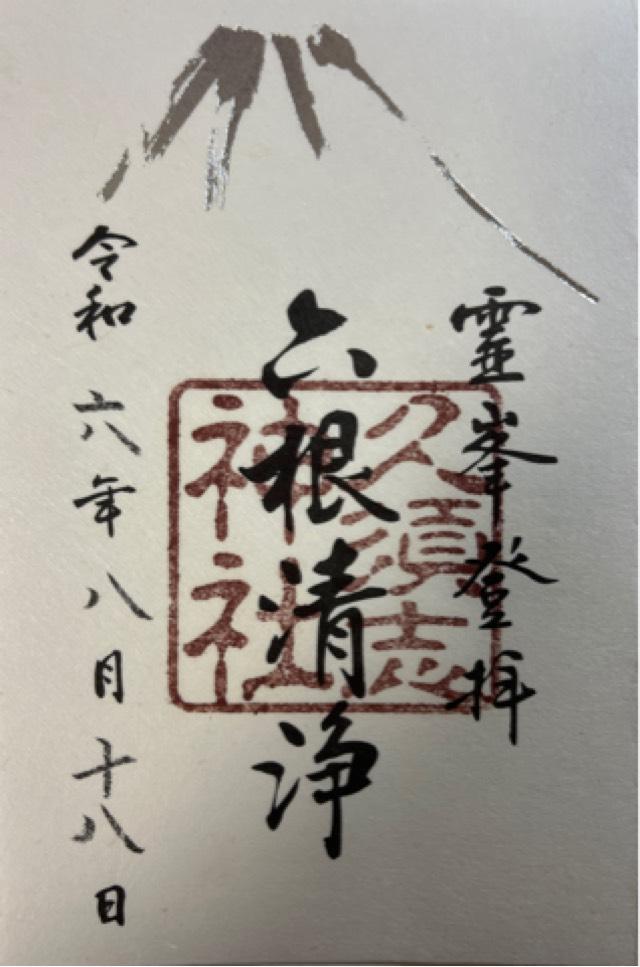 霊峯登拝
六根清浄
久須志
神社
令和六年八月十八日